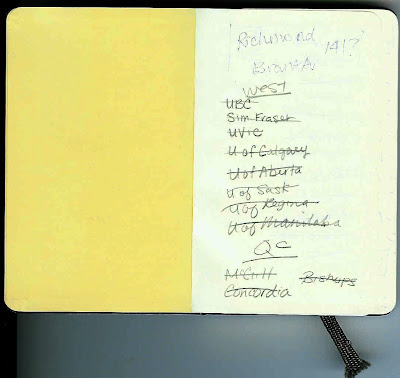 Richmond 141?
West
UBC
Sim Fraser
UVic
U of Calgary
U of Alberta
U of Sask
U of Regina
U of Manitoba
QC
McGill Bishops
Concordia